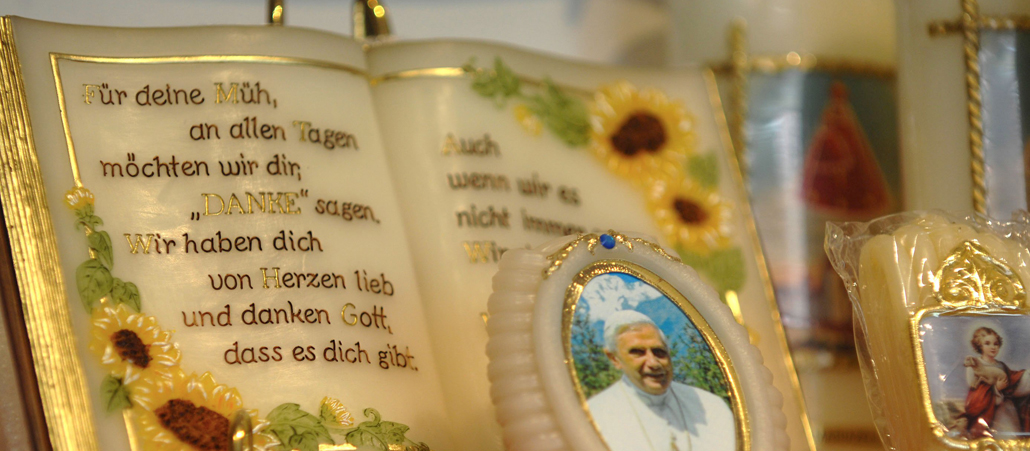 Für deine Müh,
an allen Tagen
möchten wir dir,
„DANKE“ sagen.
Wir haben dich
von Herzen lieb
und danken Gott,
dass es dich gibt.
Auch
wenn wir es
nicht immer